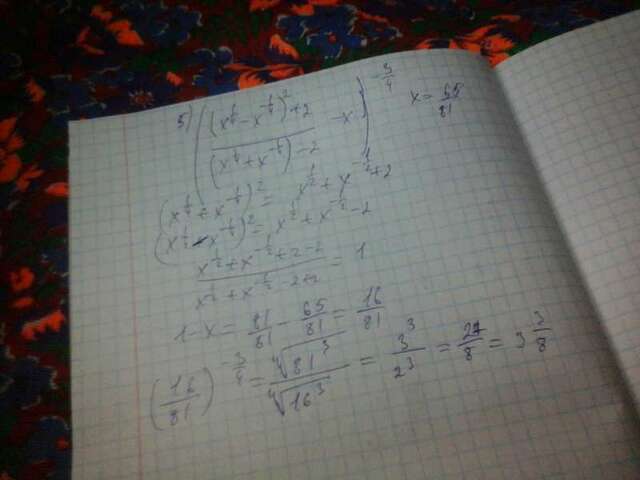 5) (((x^(1/4) - x^(-1/4))^2 + 2)/((x^(1/4) + x^(-1/4)) - 2) - x)^(-3/4) x = 65/81
(x^(1/4) + x^(-1/4))^2 = x^(1/2) + x^(-1/2) + 2
(x^(1/4) - x^(-1/4))^2 = x^(1/2) + x^(-1/2) - 2
(x^(1/2) + x^(-1/2) + 2 - 2)/(x^(1/2) + x^(-1/2) - 2 + 2) = 1
1 - x = 81/81 - 65/81 = 16/81
(16/81)^(-3/4) = ∜(81^3)/∜(16^3) = 3^3/2^3 = 27/8 = 3 3/8